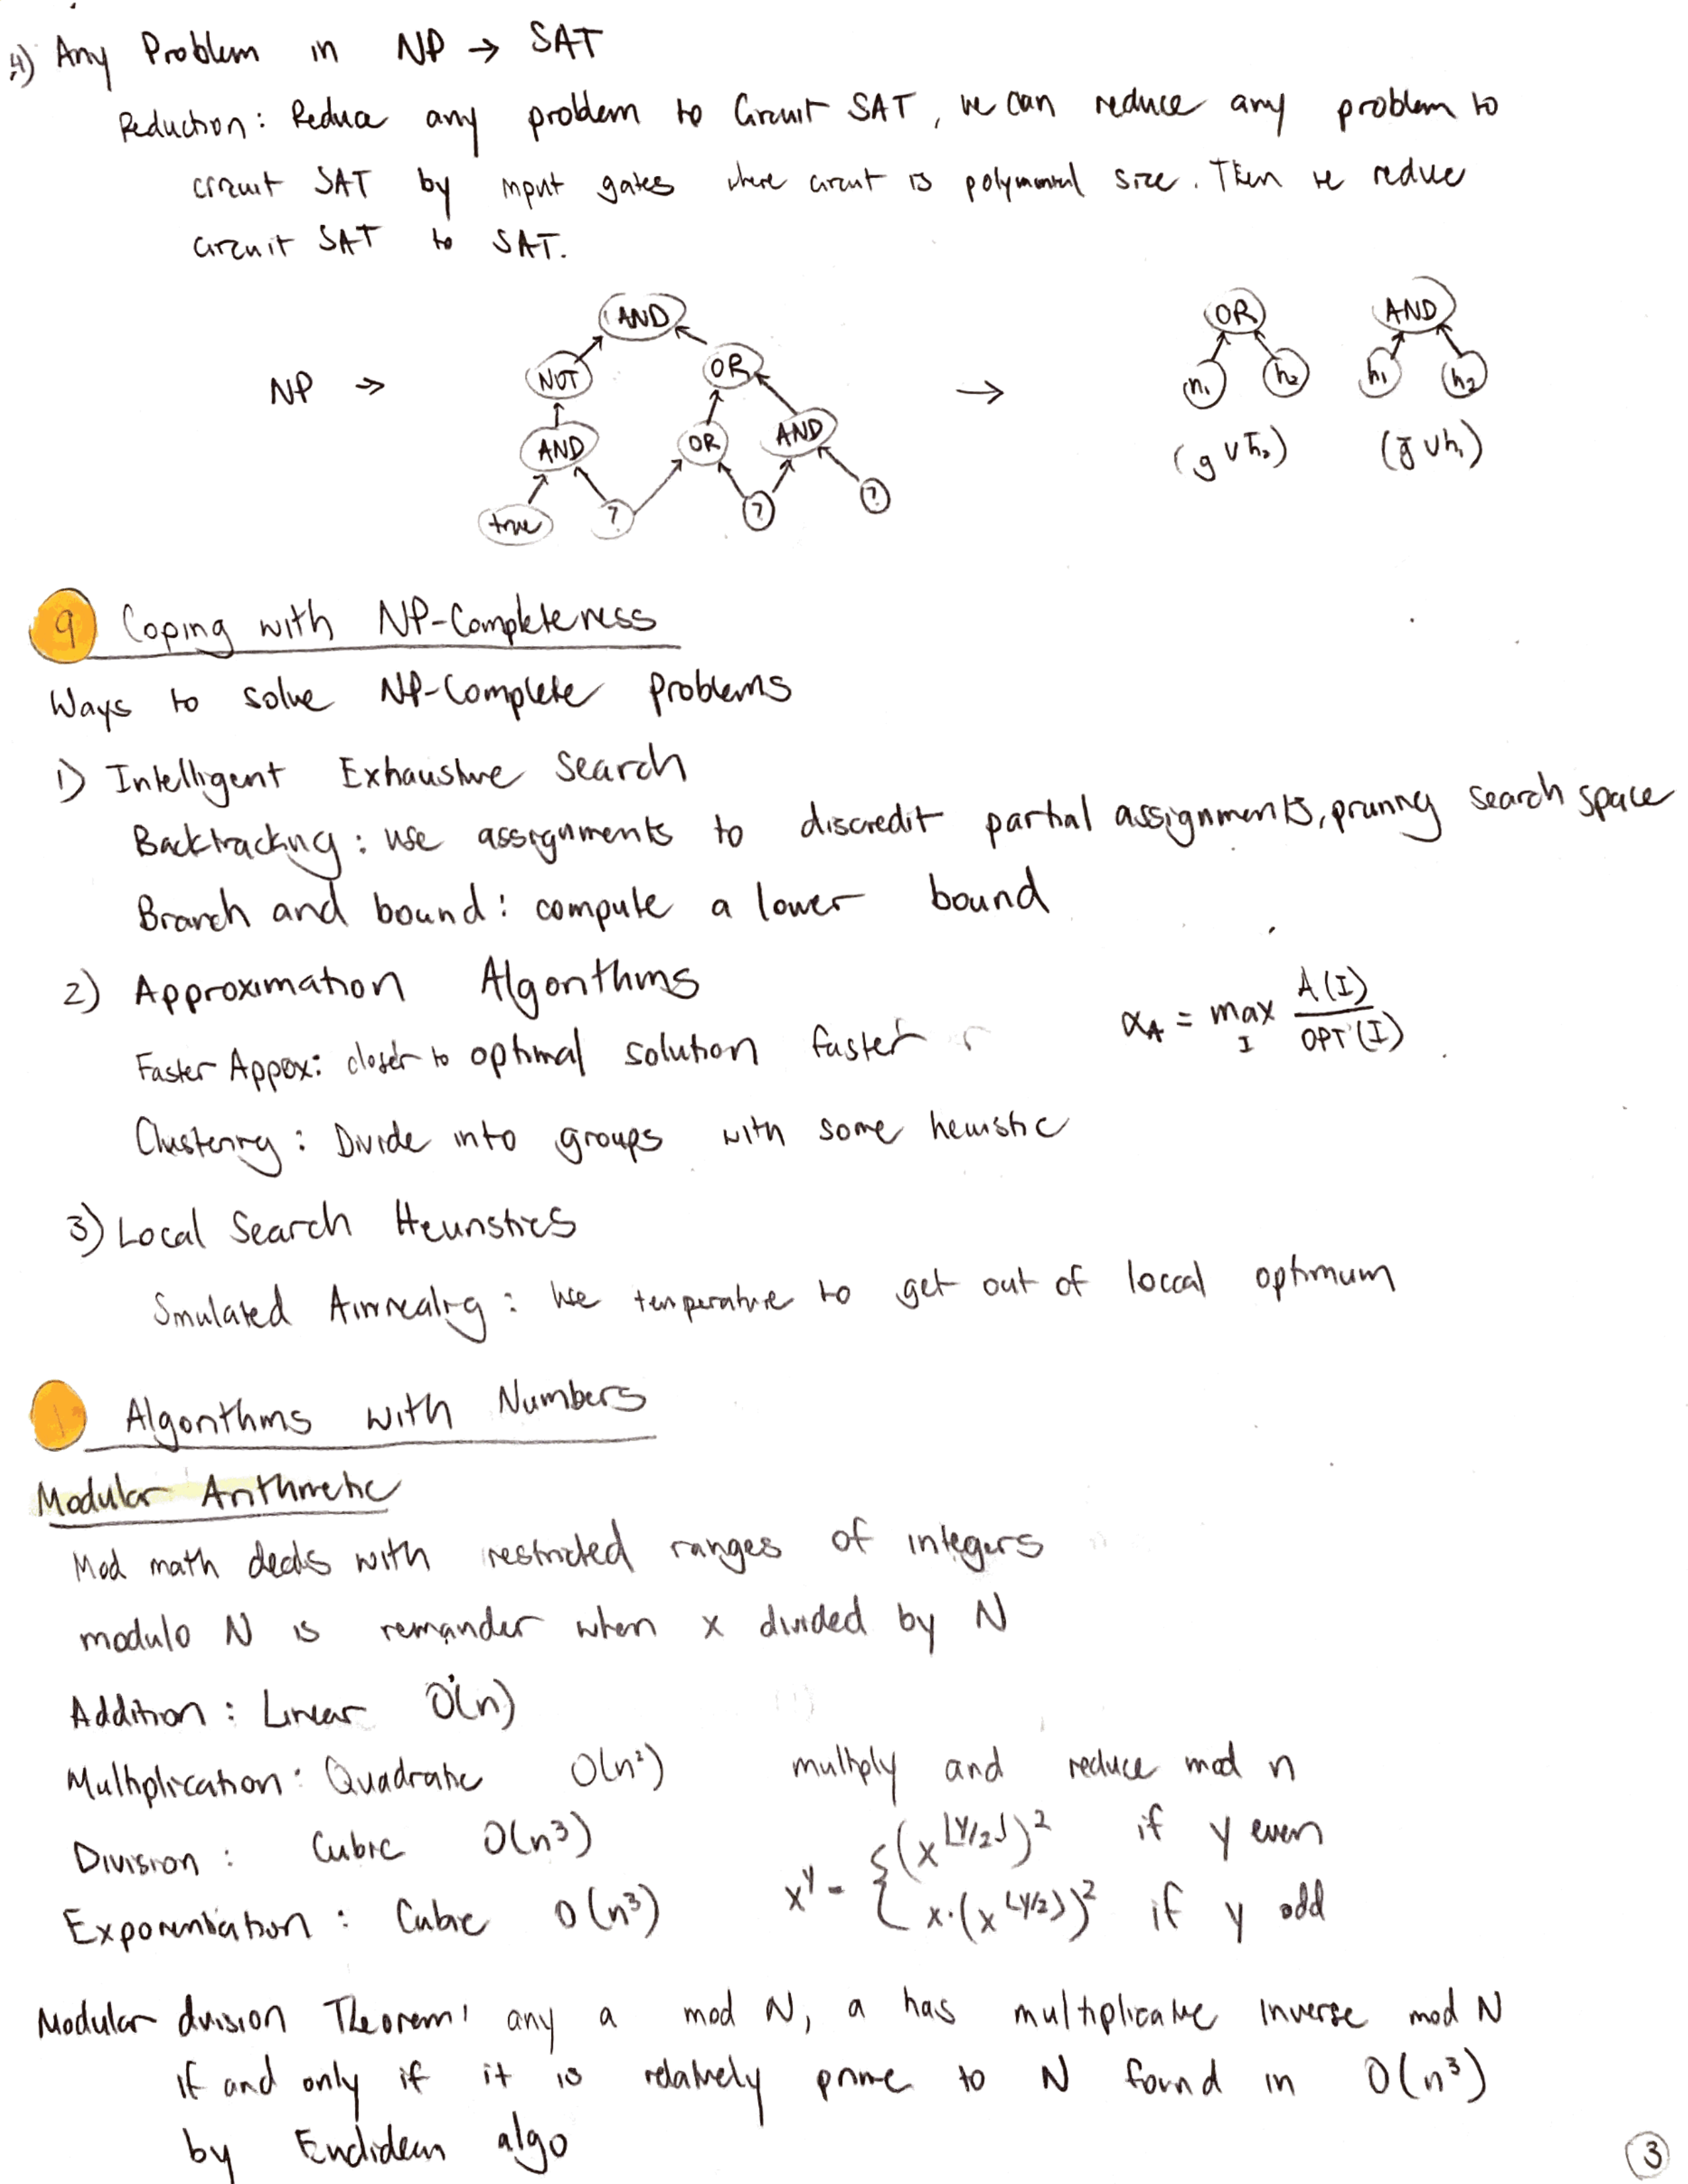 4) Any Problem in NP → SAT
Reduction: Reduce any problem to Circuit SAT, we can reduce any problem to
circuit SAT by input gates where circuit is polynomial size. Then we reduce
circuit SAT to SAT.
NP →
AND
NOT OR
AND OR AND
true ? ? ?
→
OR AND
h₁ h₂ h₁ h₂
(g ∨ h̅₂) (g̅ ∨ h₁)
9 Coping with NP-Completeness
Ways to solve NP-Complete problems
1) Intelligent Exhaustive Search
Backtracking: use assignments to discredit partial assignments, pruning search space
Branch and bound: compute a lower bound
2) Approximation Algorithms
α_A = max_I A(I)/OPT(I)
Faster Appox: closer to optimal solution faster
Clustering: Divide into groups with some heuristic
3) Local Search Heuristics
Simulated Annealing: Use temperature to get out of loccal optimum
1 Algorithms with Numbers
Modular Arithmetic
Mod math deals with restricted ranges of integers
modulo N is remainder when x divided by N
Addition: Linear O(n)
Multiplication: Quadratic O(n²) multiply and reduce mod n
Division: Cubic O(n³)
Exponentiation: Cubic O(n³)
x^y = { (x^⌊y/2⌋)² if y even
x·(x^⌊y/2⌋)² if y odd
Modular division Theorem: any a mod N, a has multiplicative inverse mod N
if and only if it is relatively prime to N found in O(n³)
by Euclidean algo
3